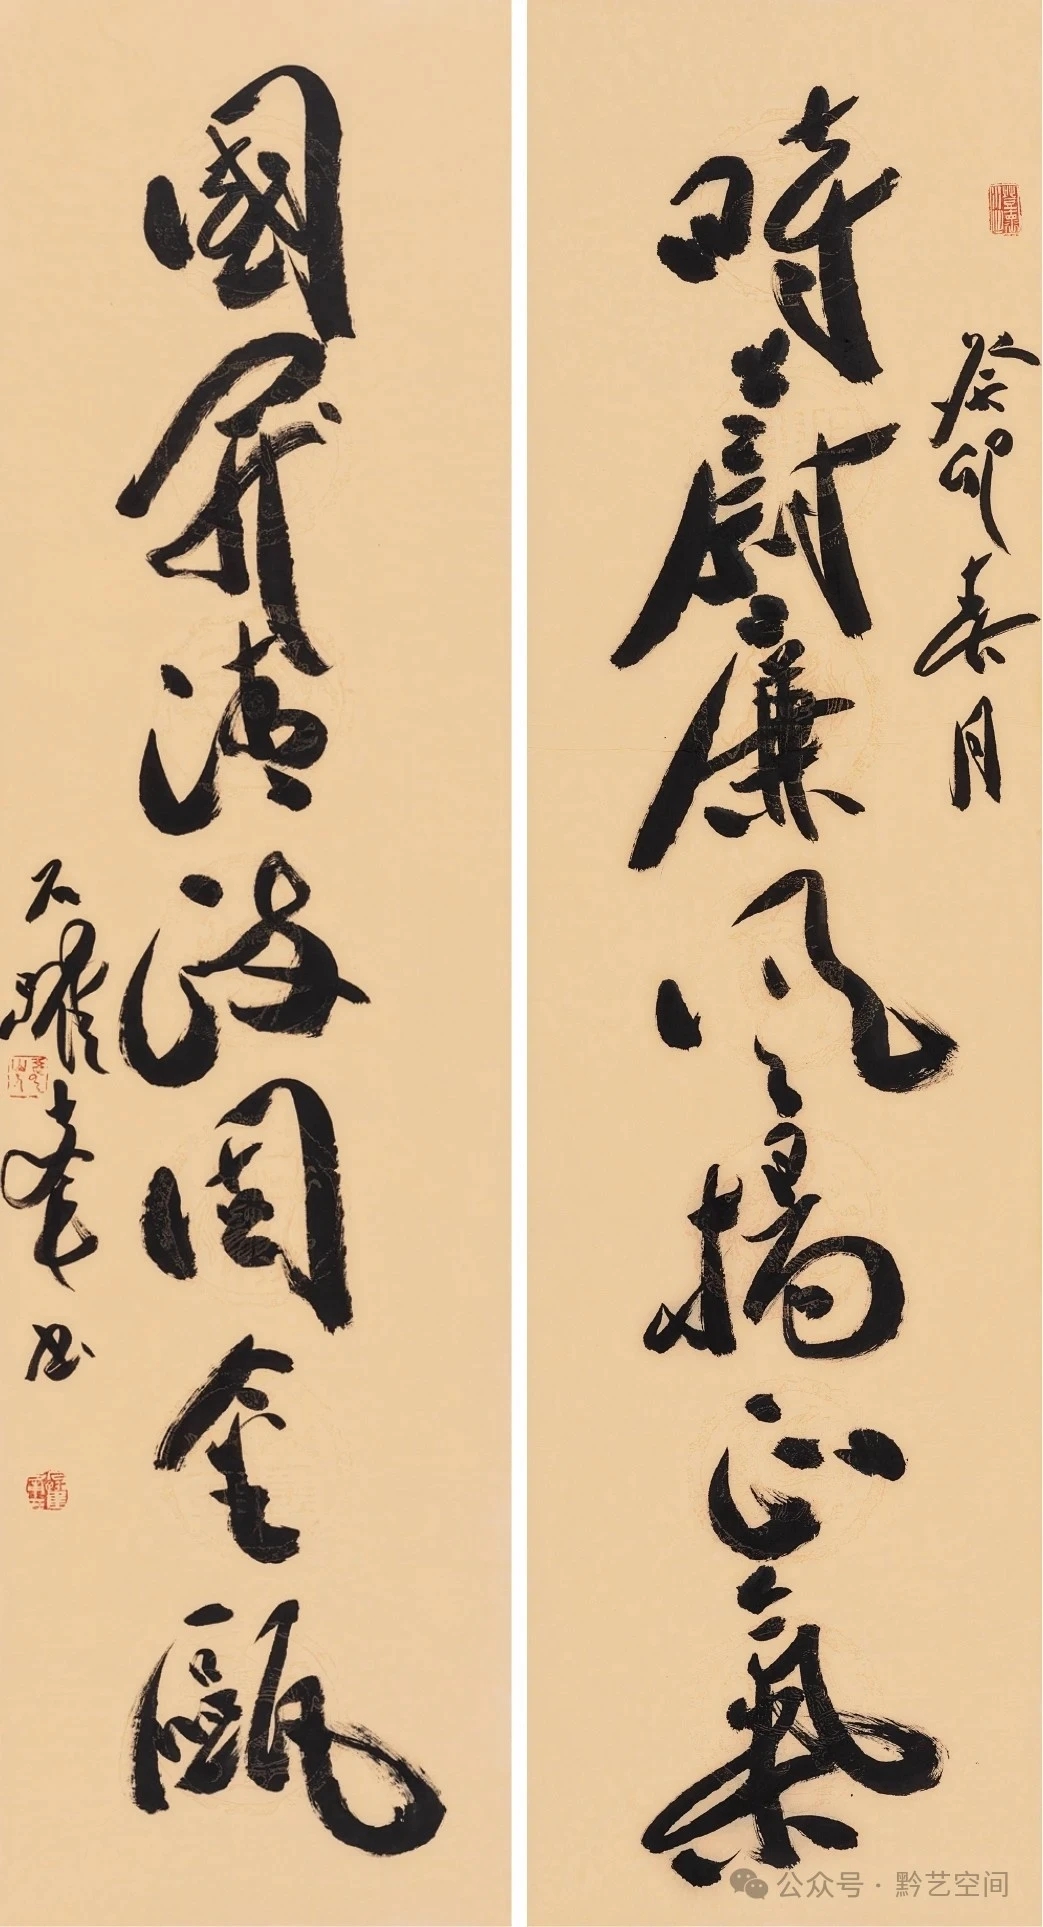 癸卯春月
時蔚廉風揚正氣
國開清海固金甌
石耀书
公众号·黔艺空间